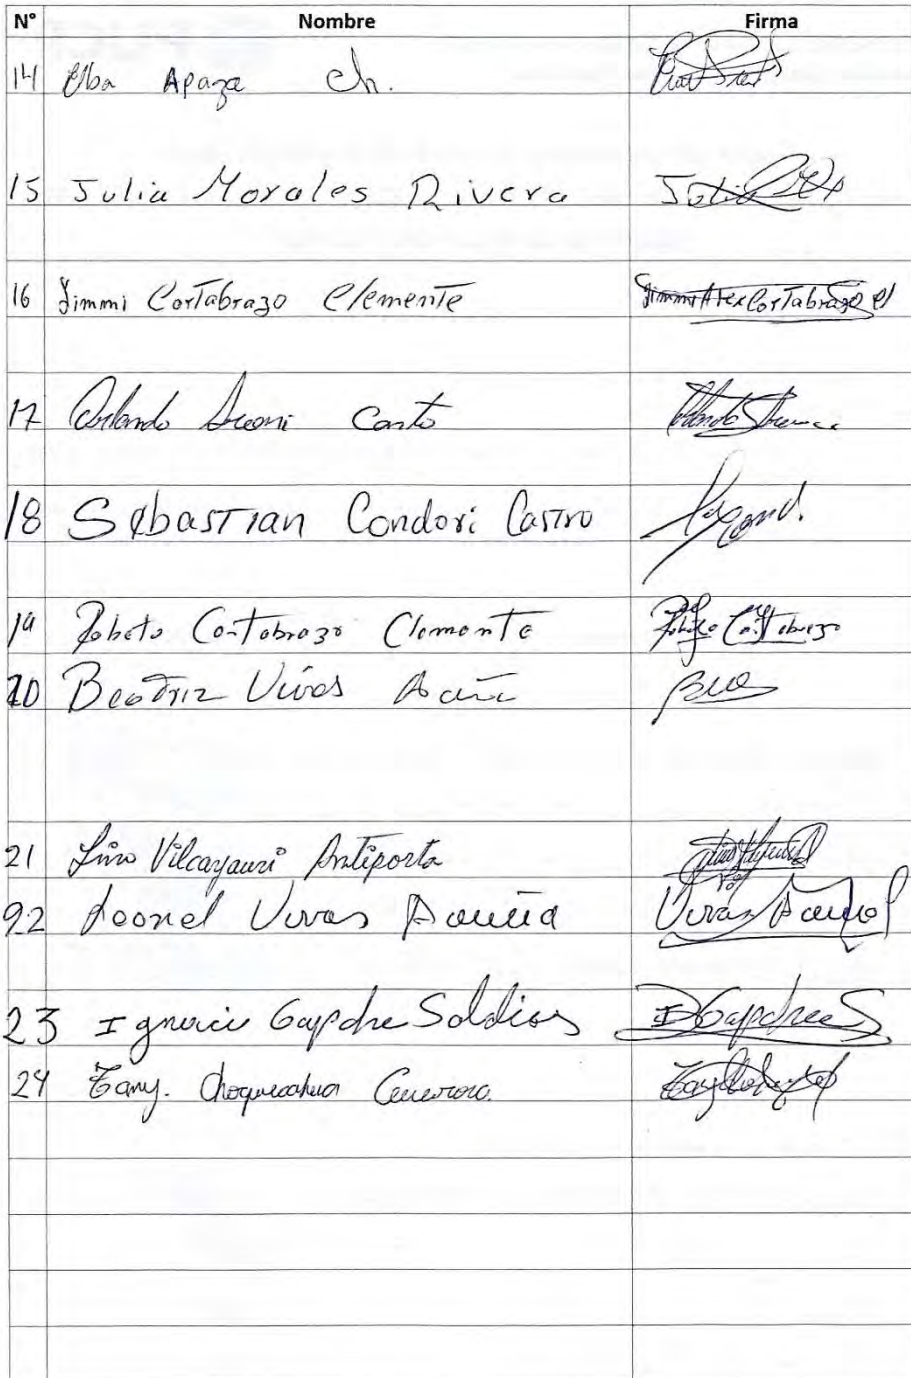 N° Nombre Firma
14 Elba Apaza Ch.
15 Julia Morales Rivera Julia
16 Jimmi Cortabrazo Clemente Jimmi Alex Cortabrazo Cl
17 Orlando Canto Orlando
18 Sebastian Condori Castro
19 Robeto Contobrazo Clemente
20 Beatriz Vivas Acuña Bea
21 Lino Vilcayauri Antiporta
22 Leonel Vivas Acuña Vivas Acuña
23 Ignacio Gapche Soldios I Gapche S
24 Tany. Choquecahua